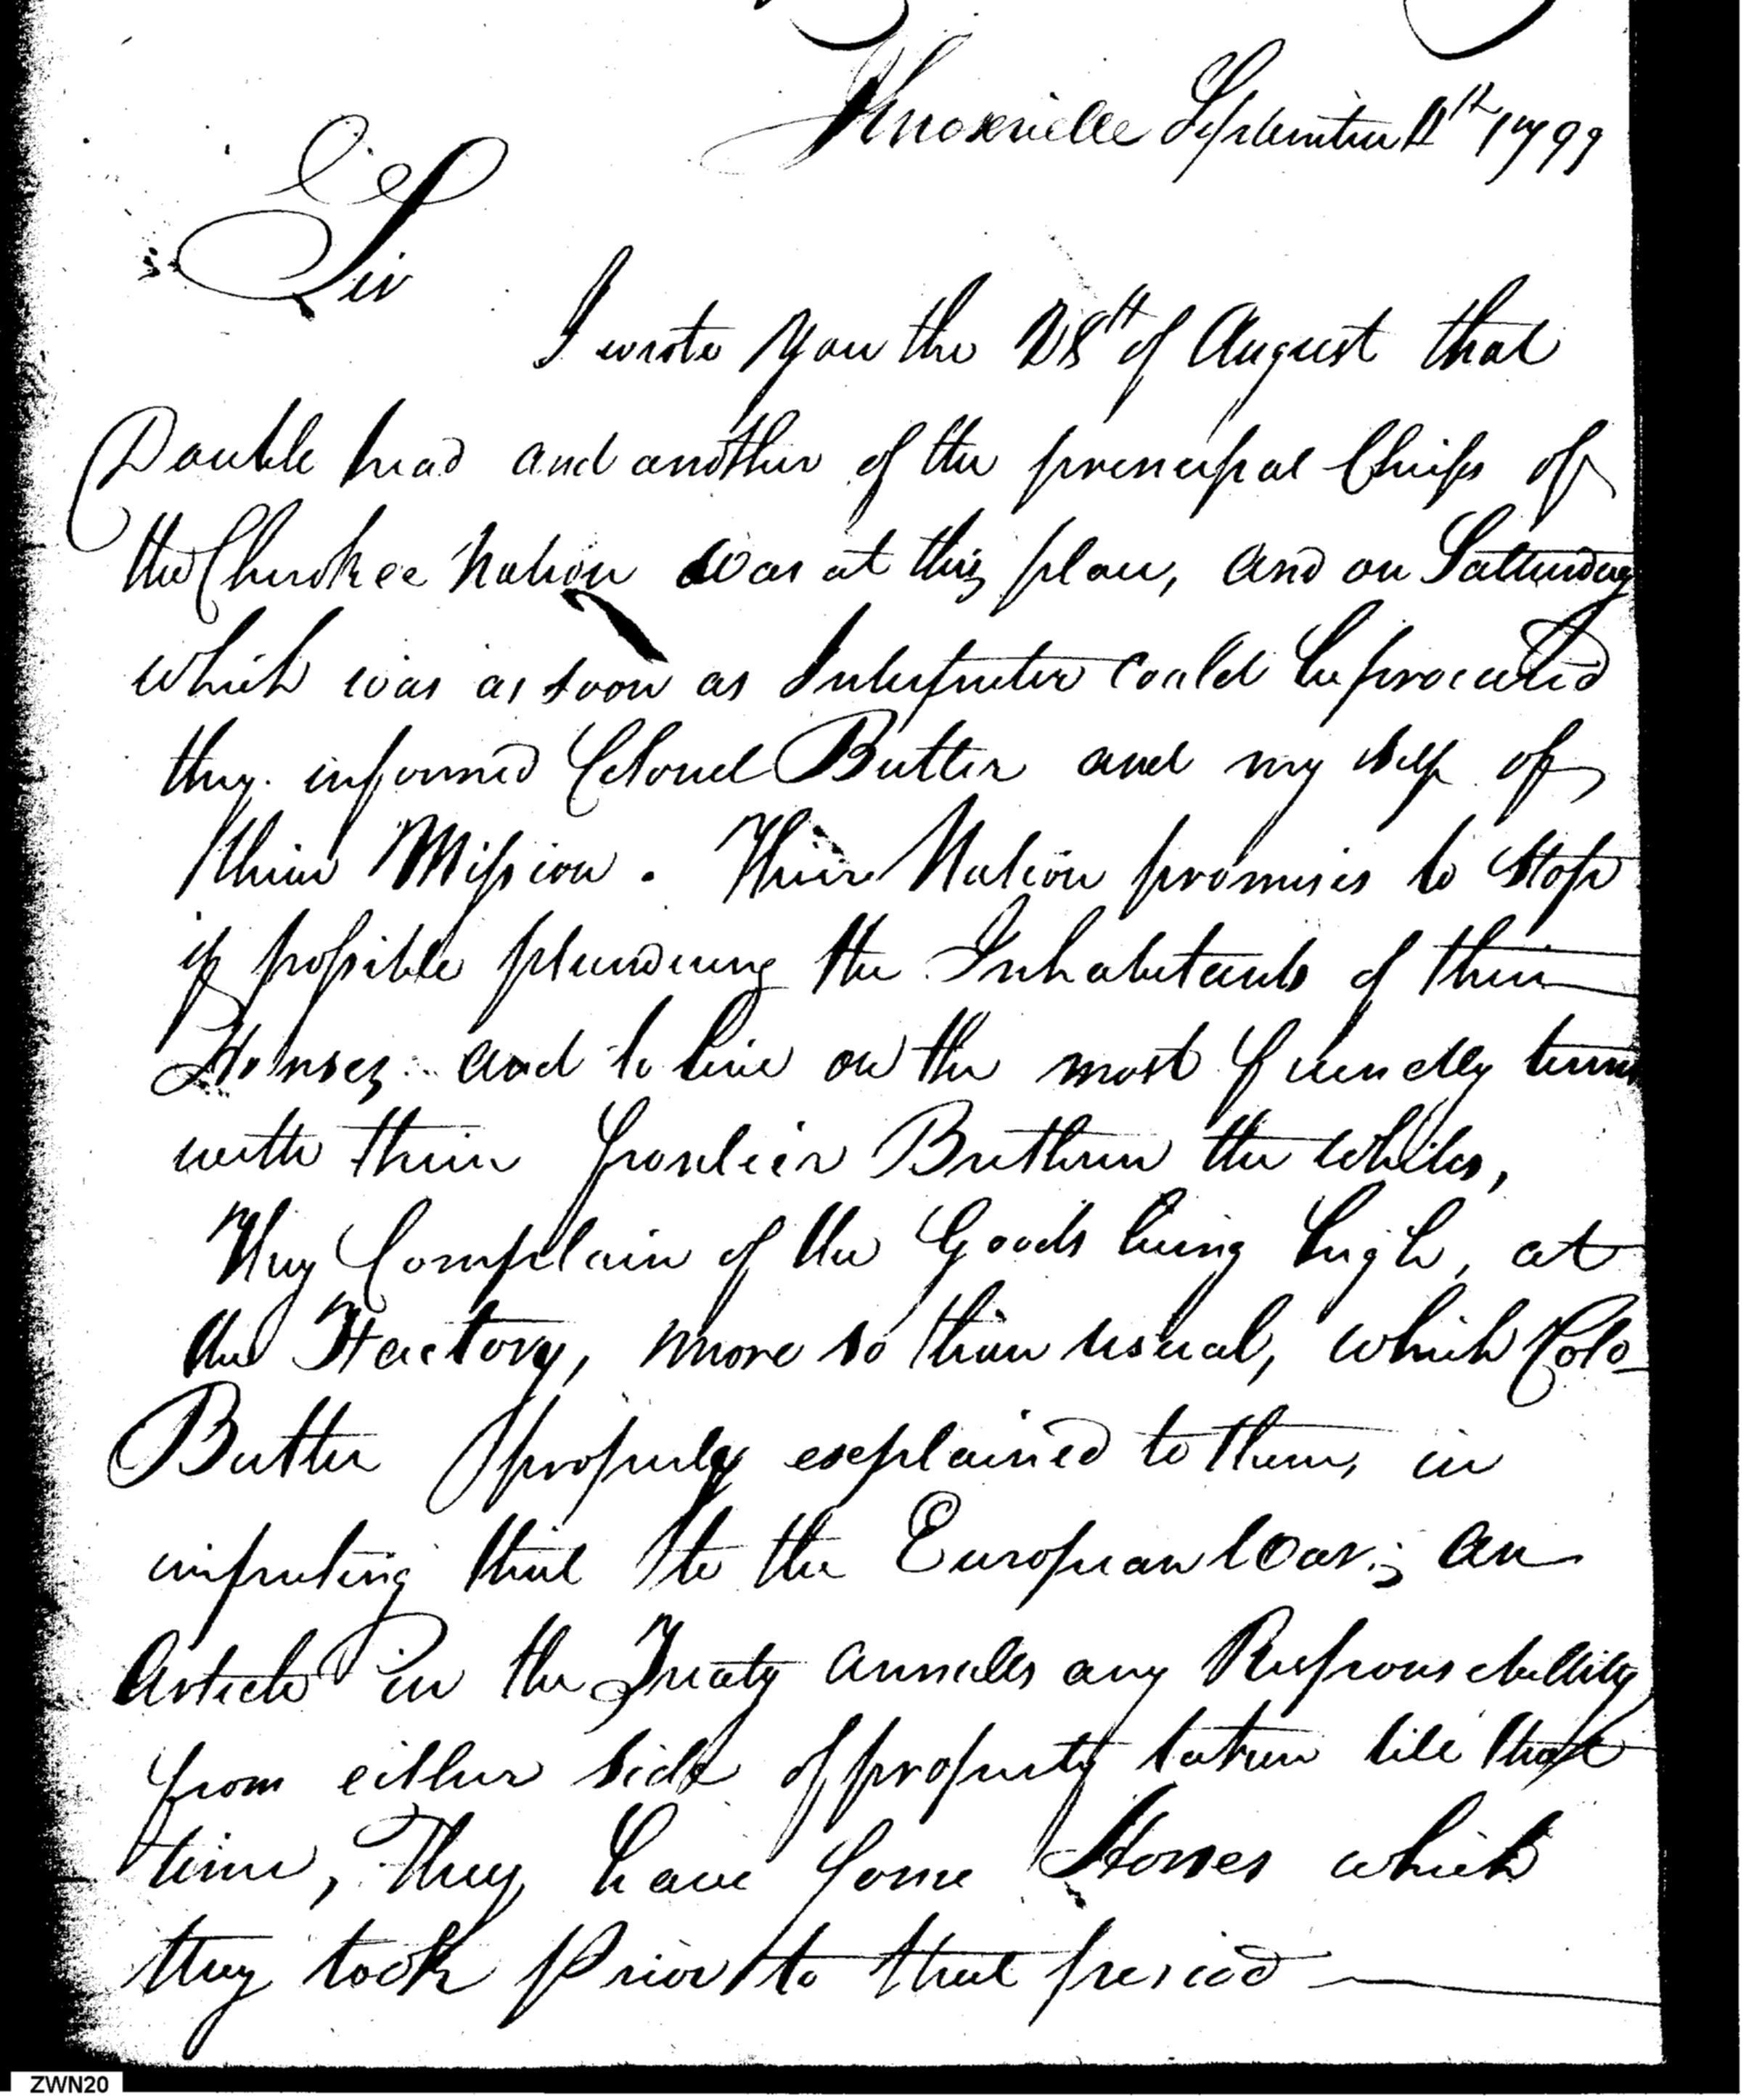 Knoxville September 11th 1799
Sir
I wrote you the 28th of August that
Double head and another of the principal Chiefs of
the Cherokee Nation was at this place, and on Satturday
which was as soon as Interpreter could be procured
they informed Colonel Butler and my self of
their Mission. Their Nation promises to stop
if possible plundering the Inhabitants of their
Horses and to live on the most friendly terms
with their frontier Brethren the Whites,
They Complain of the Goods being high, at
the Factory, more so than usual, which Colo
Butler properly explained to them, in
imputing that to the European War; an
Article in the Treaty annulls any Responsibillity
from either side of property taken till that
time, They have some Horses which
they took Prior to that period
ZWN20